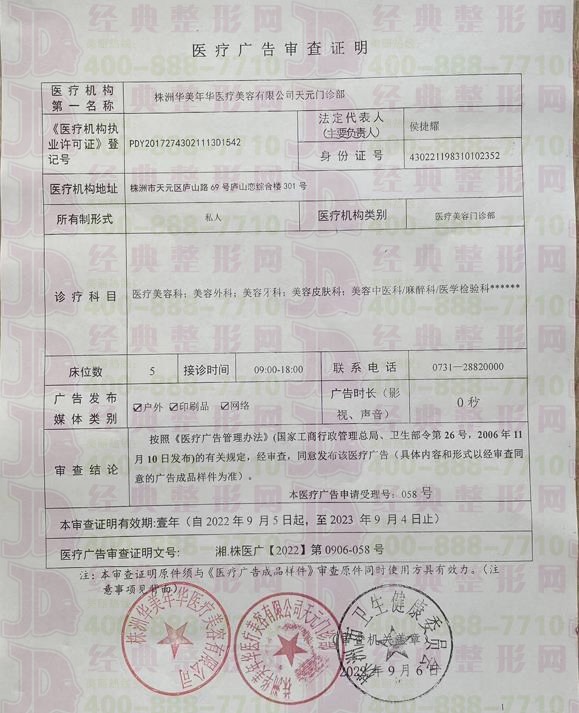 医疗广告审查证明
医疗机构
第一名称
株洲华美年华医疗美容有限公司天元门诊部
《医疗机构执
业许可证》登
记号
PDY20172743021113D1542
法定代表人
(主要负责人)
侯捷耀
身份证号
430221198310102352
医疗机构地址
株洲市天元区庐山路 69 号庐山恋综合楼 301 号
所有制形式
私人
医疗机构类别
医疗美容门诊部
诊疗科目
医疗美容科；美容外科；美容牙科；美容皮肤科；美容中医科/麻醉科/医学检验科******
床位数
5
接诊时间
09:00-18:00
联系电话
0731-28820000
广告发布
媒体类别
☑户外 ☑印刷品 ☑网络
广告时长（影
视、声音）
0 秒
审查结论
按照《医疗广告管理办法》(国家工商行政管理总局、卫生部令第 26 号，2006 年 11
月 10 日发布)的有关规定，经审查，同意发布该医疗广告（具体内容和形式以经审查同
意的广告成品样件为准）。
本医疗广告申请受理号：058 号
本审查证明有效期:壹年（自 2022 年 9 月 5 日起，至 2023 年 9 月 4 日止）
医疗广告审查证明文号：湘.株医广【2022】第 0906-058 号
注：本审查证明原件须与《医疗广告成品样件》审查原件同时使用方具有效力。（注
意事项见背面）
株洲华美年华医疗美容有限公司
株洲华美年华医疗美容有限公司天元门诊部
株洲市卫生健康委员会
（审查机关盖章）
2022 年 9 月 6 日
经典整形网
400-888-7710